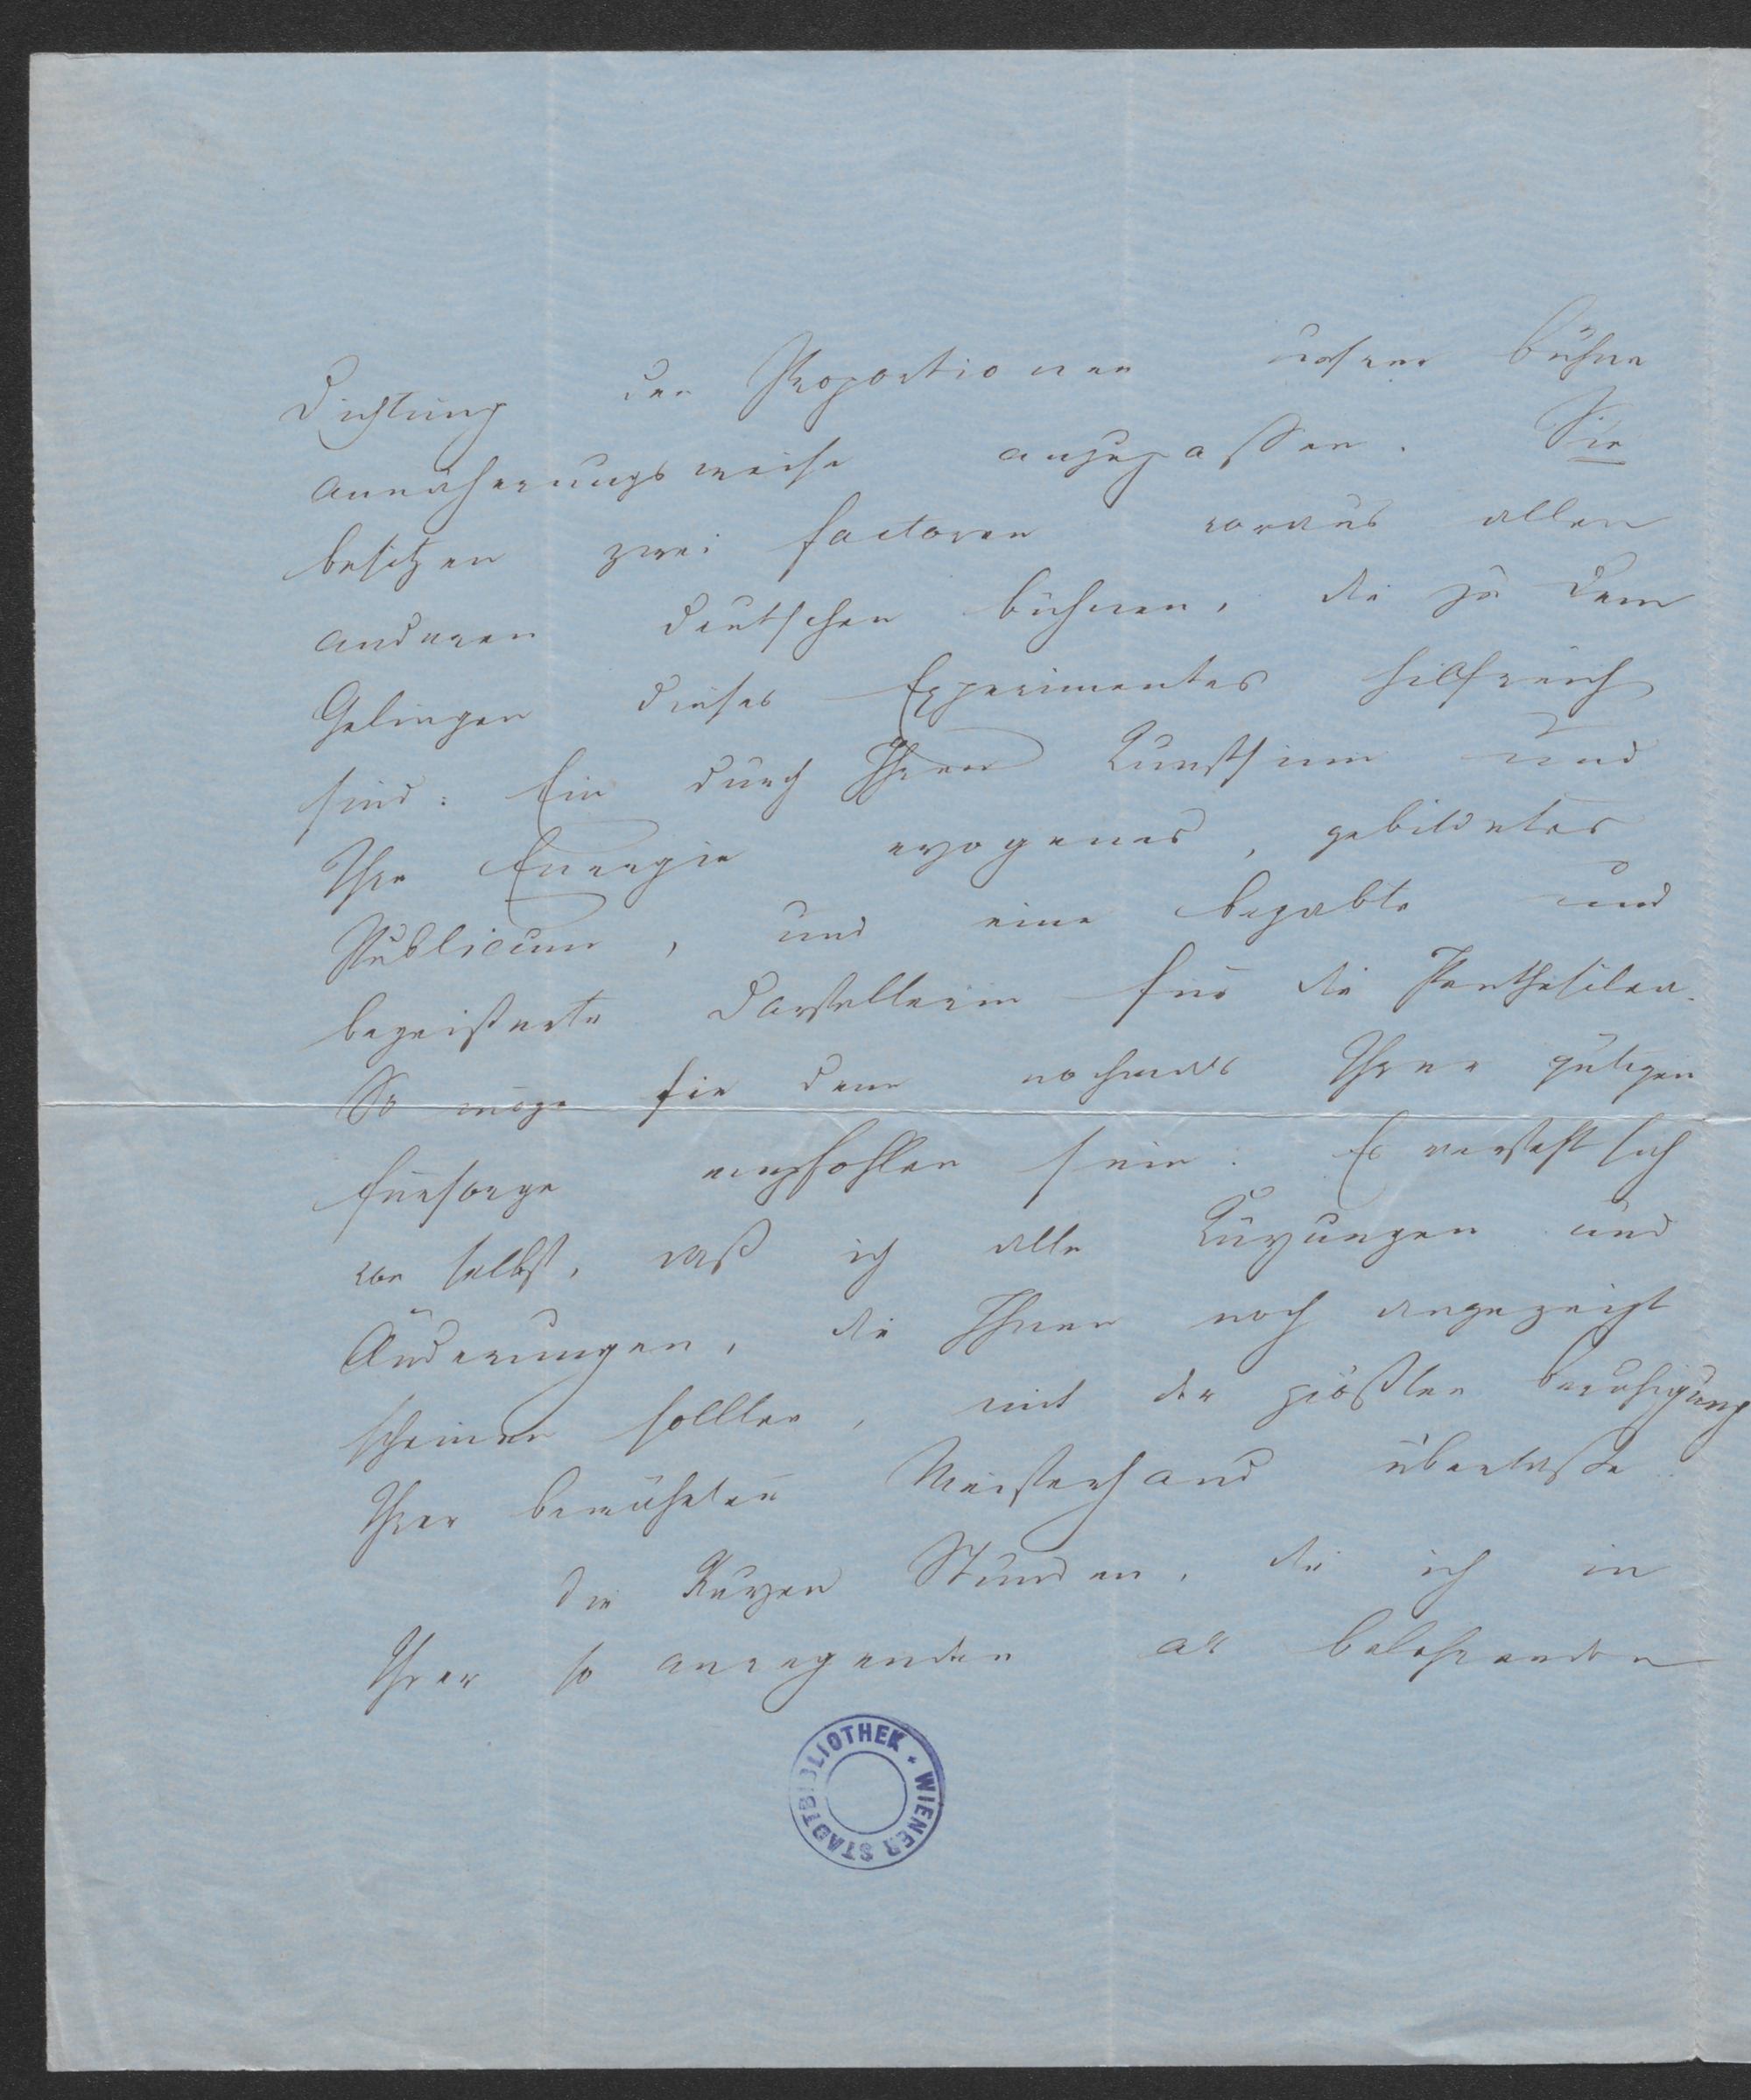 Dichtung den Proportionen unsrer Bühne
annäherungsweise anzupassen. Sie
besitzen zwei Factoren voraus allen
anderen deutschen Bühnen, die zu dem
Gelingen dieses Experimentes hilfreich
sind: Ein durch Ihren Kunstsinn und
Ihre Energie erzogenes, gebildetes
Publicum, und eine begabte und
begeisterte Darstellerin für die Penthesilea.
So möge sie denn nochmals Ihrer gütigen
Fürsorge empfohlen sein. Es versteht sich
von selbst, daß ich alle Kürzungen und
Änderungen, die Ihnen noch angezeigt
scheinen sollten, mit der größten Beruhigung
Ihrer bewährten Meisterhand überlasse.
Die kurzen Stunden, die ich in
Ihrer so anregenden als belehrenden
WIENER STADTBIBLIOTHEK